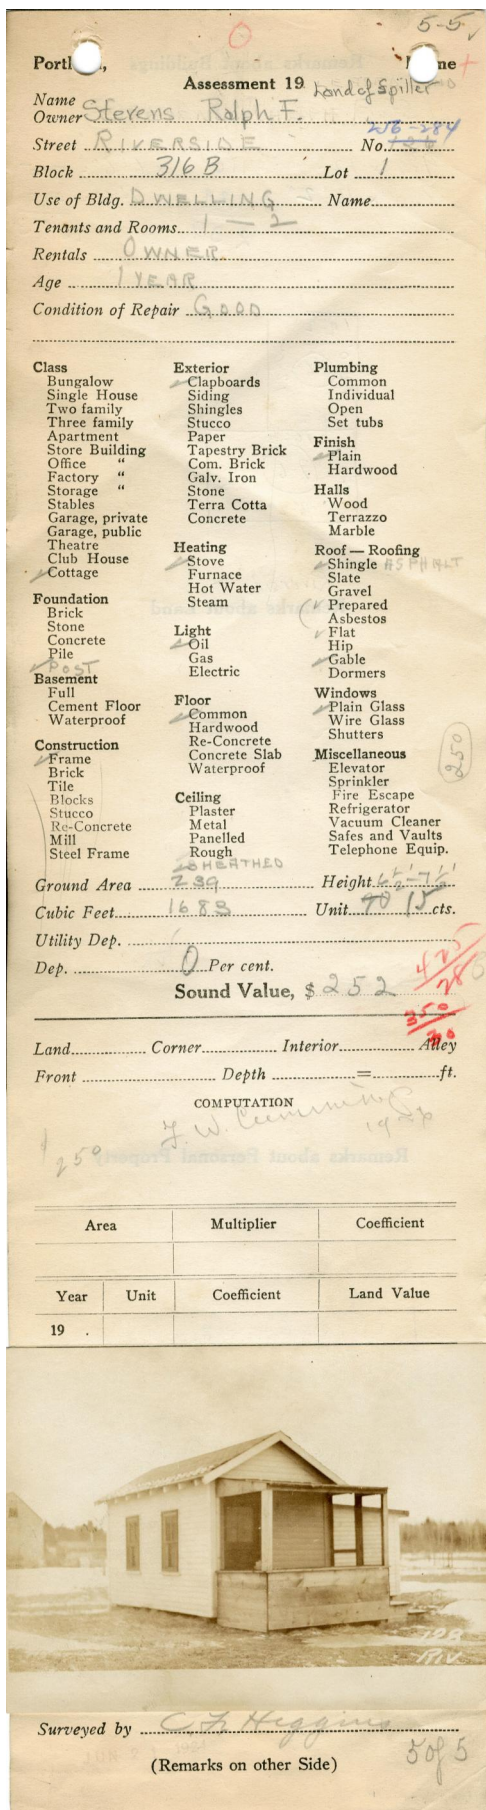 5-5
Portl , ne
Assessment 19 Land of Spiller
Name
Owner Stevens Ralph F.
256-284
Street RIVERSIDE No.
Block 316 B Lot 1
Use of Bldg. DWELLING Name
Tenants and Rooms. 1 — 2
Rentals OWNER
Age 1 YEAR
Condition of Repair GOOD
Class
Bungalow
Single House
Two family
Three family
Apartment
Store Building
Office "
Factory "
Storage "
Stables
Garage, private
Garage, public
Theatre
Club House
Cottage
Foundation
Brick
Stone
Concrete
Pile
POST
Basement
Full
Cement Floor
Waterproof
Construction
Frame
Brick
Tile
Blocks
Stucco
Re-Concrete
Mill
Steel Frame
Exterior
Clapboards
Siding
Shingles
Stucco
Paper
Tapestry Brick
Com. Brick
Galv. Iron
Stone
Terra Cotta
Concrete
Heating
Stove
Furnace
Hot Water
Steam
Light
Oil
Gas
Electric
Floor
Common
Hardwood
Re-Concrete
Concrete Slab
Waterproof
Ceiling
Plaster
Metal
Panelled
Rough
SHEATHED
Plumbing
Common
Individual
Open
Set tubs
Finish
Plain
Hardwood
Halls
Wood
Terrazzo
Marble
Roof — Roofing
Shingle ASPHALT
Slate
Gravel
Prepared
Asbestos
Flat
Hip
Gable
Dormers
Windows
Plain Glass
Wire Glass
Shutters
250
Miscellaneous
Elevator
Sprinkler
Fire Escape
Refrigerator
Vacuum Cleaner
Safes and Vaults
Telephone Equip.
Ground Area 239 Height 6½'-7½'
Cubic Feet 1683 Unit 15 cts.
Utility Dep.
Dep. 0 Per cent.
425
28
Sound Value, $ 252
350
30
Land Corner Interior Alley
Front Depth = ft.
COMPUTATION
F. W. Cummings
$ 250
Remarks about Personal Property
Area Multiplier Coefficient
Year Unit Coefficient Land Value
19 .
128
RIV
Surveyed by C. F. Higgins
(Remarks on other Side)
5 of 5